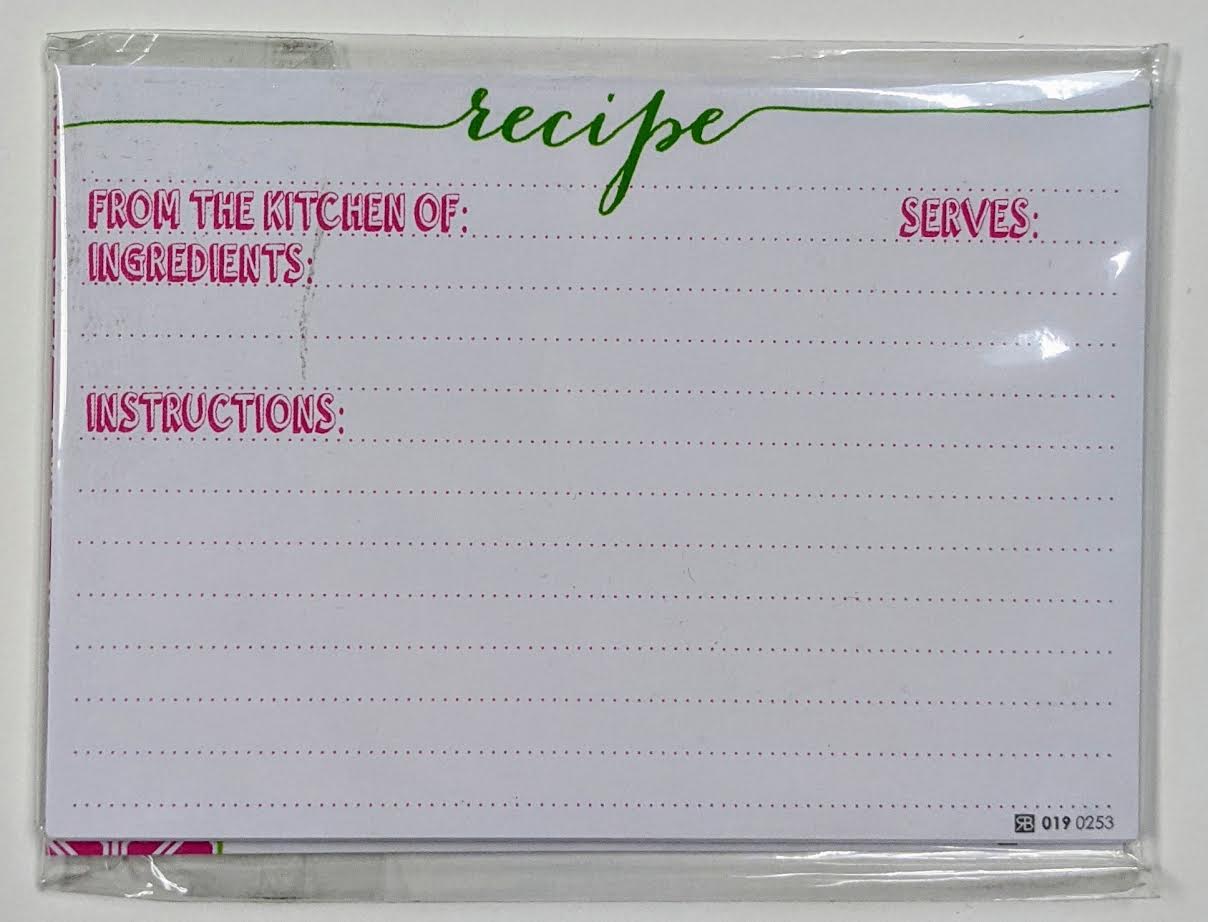 recipe
FROM THE KITCHEN OF: SERVES:
INGREDIENTS:
INSTRUCTIONS:
RB 019 0253